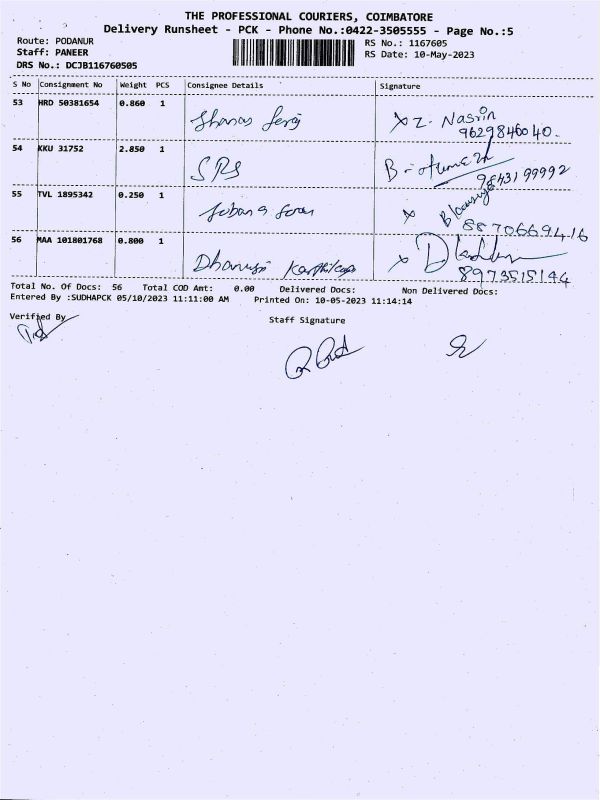 THE PROFESSIONAL COURIERS, COIMBATORE
Delivery Runsheet - PCK - Phone No.:0422-3505555 - Page No.:5
Route: PODANUR
Staff: PANEER
DRS No.: DCJB116760505
RS No.: 1167605
RS Date: 10-May-2023
S No Consignment No Weight PCS Consignee Details Signature
53 HRD 50381654 0.860 1
x Z. Nasrin
9629846040.
54 KKU 31752 2.850 1 SRS
9843199992
55 TVL 1895342 0.250 1
8870669416
56 MAA 101801768 0.800 1
8973515144
Total No. Of Docs: 56 Total COD Amt: 0.00 Delivered Docs: Non Delivered Docs:
Entered By :SUDHAPCK 05/10/2023 11:11:00 AM Printed On: 10-05-2023 11:14:14
Verified By
Staff Signature